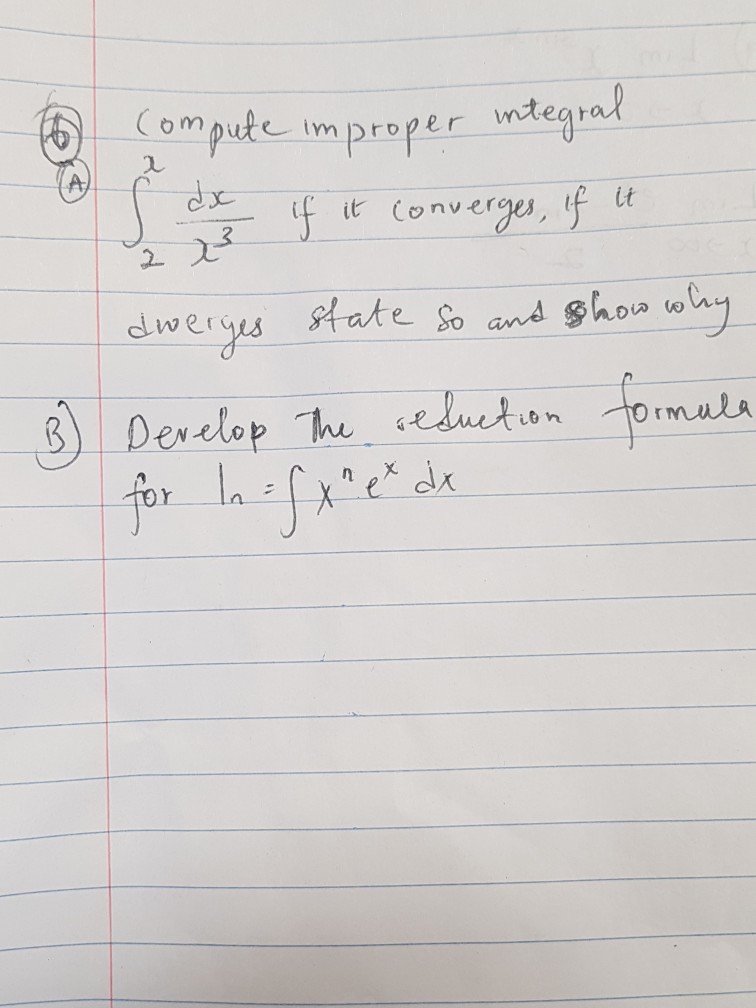 6 Compute improper integral
A ∫₂ˣ dx/x³ if it converges, if it
diverges state so and show why
B) Develop the reduction formula
for In = ∫xⁿeˣ dx